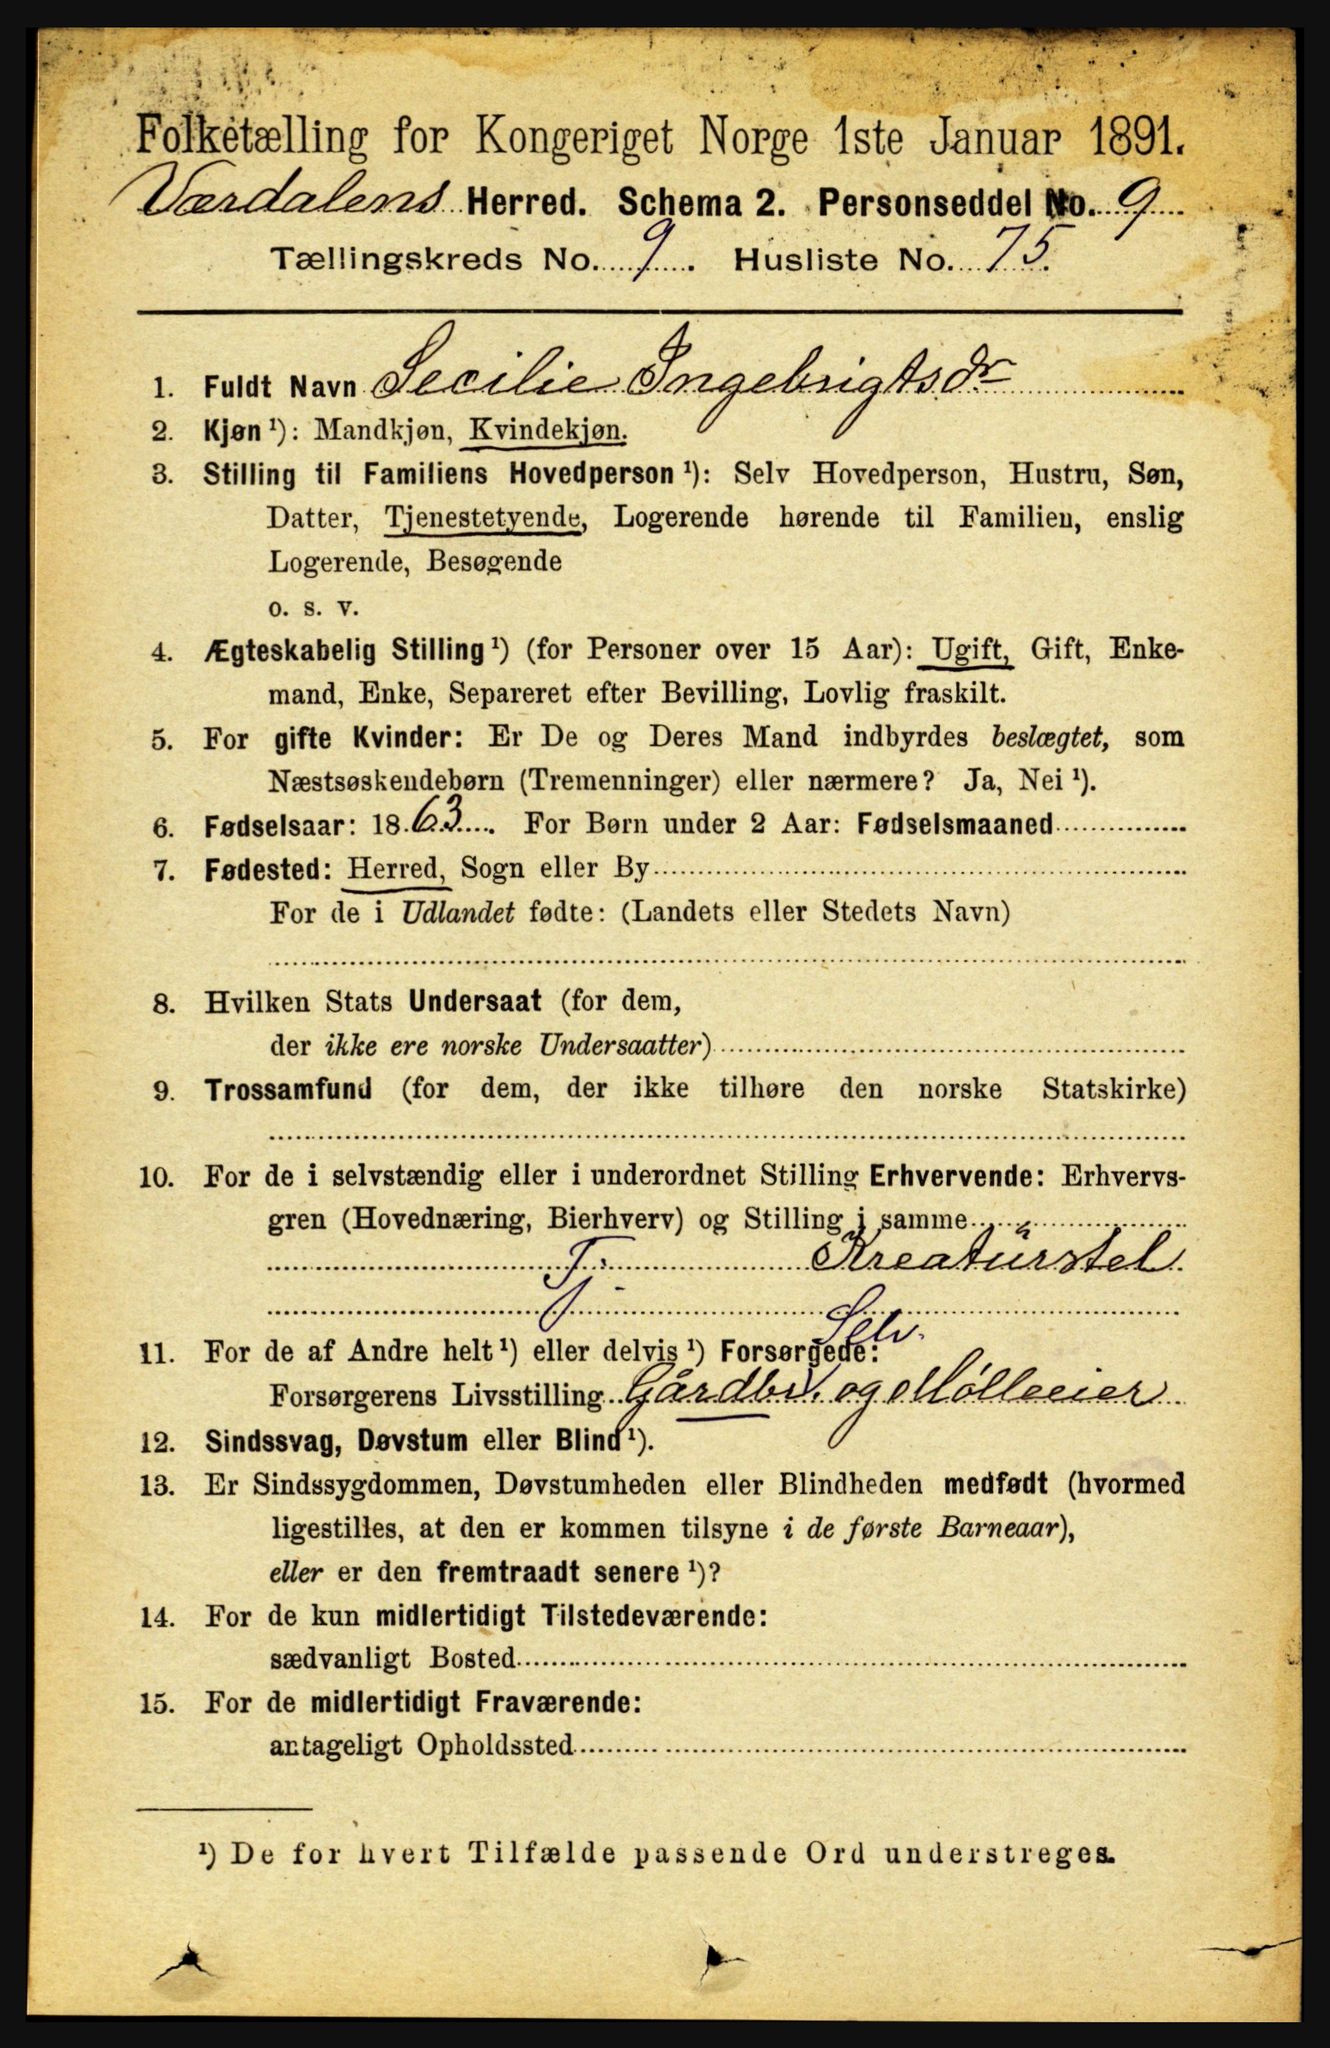 Folketælling for Kongeriget Norge 1ste Januar 1891.
Værdalens Herred. Schema 2. Personseddel No. 9
Tællingskreds No. 9. Husliste No. 75.
1. Fuldt Navn Secilie Ingebrigtsdr
2. Kjøn ¹): Mandkjøn, Kvindekjøn.
3. Stilling til Familiens Hovedperson ¹): Selv Hovedperson, Hustru, Søn,
Datter, Tjenestetyende, Logerende hørende til Familien, enslig
Logerende, Besøgende
o. s. v.
4. Ægteskabelig Stilling ¹) (for Personer over 15 Aar): Ugift, Gift, Enke-
mand, Enke, Separeret efter Bevilling, Lovlig fraskilt.
5. For gifte Kvinder: Er De og Deres Mand indbyrdes beslægtet, som
Næstsøskendebørn (Tremenninger) eller nærmere? Ja, Nei ¹).
6. Fødselsaar: 1863. For Børn under 2 Aar: Fødselsmaaned
7. Fødested: Herred, Sogn eller By
For de i Udlandet fødte: (Landets eller Stedets Navn)
8. Hvilken Stats Undersaat (for dem,
der ikke ere norske Undersaatter)
9. Trossamfund (for dem, der ikke tilhøre den norske Statskirke)
10. For de i selvstændig eller i underordnet Stilling Erhvervende: Erhvervs-
gren (Hovednæring, Bierhverv) og Stilling i samme
Tj Kreaturstel
Selv.
11. For de af Andre helt ¹) eller delvis ¹) Forsørgede:
Forsørgerens Livsstilling Gårdbr. og Mølleeier
12. Sindssvag, Døvstum eller Blind ¹).
13. Er Sindssygdommen, Døvstumheden eller Blindheden medfødt (hvormed
ligestilles, at den er kommen tilsyne i de første Barneaar),
eller er den fremtraadt senere ¹)?
14. For de kun midlertidigt Tilstedeværende:
sædvanligt Bosted
15. For de midlertidigt Fraværende:
antageligt Opholdssted
¹) De for hvert Tilfælde passende Ord understreges.